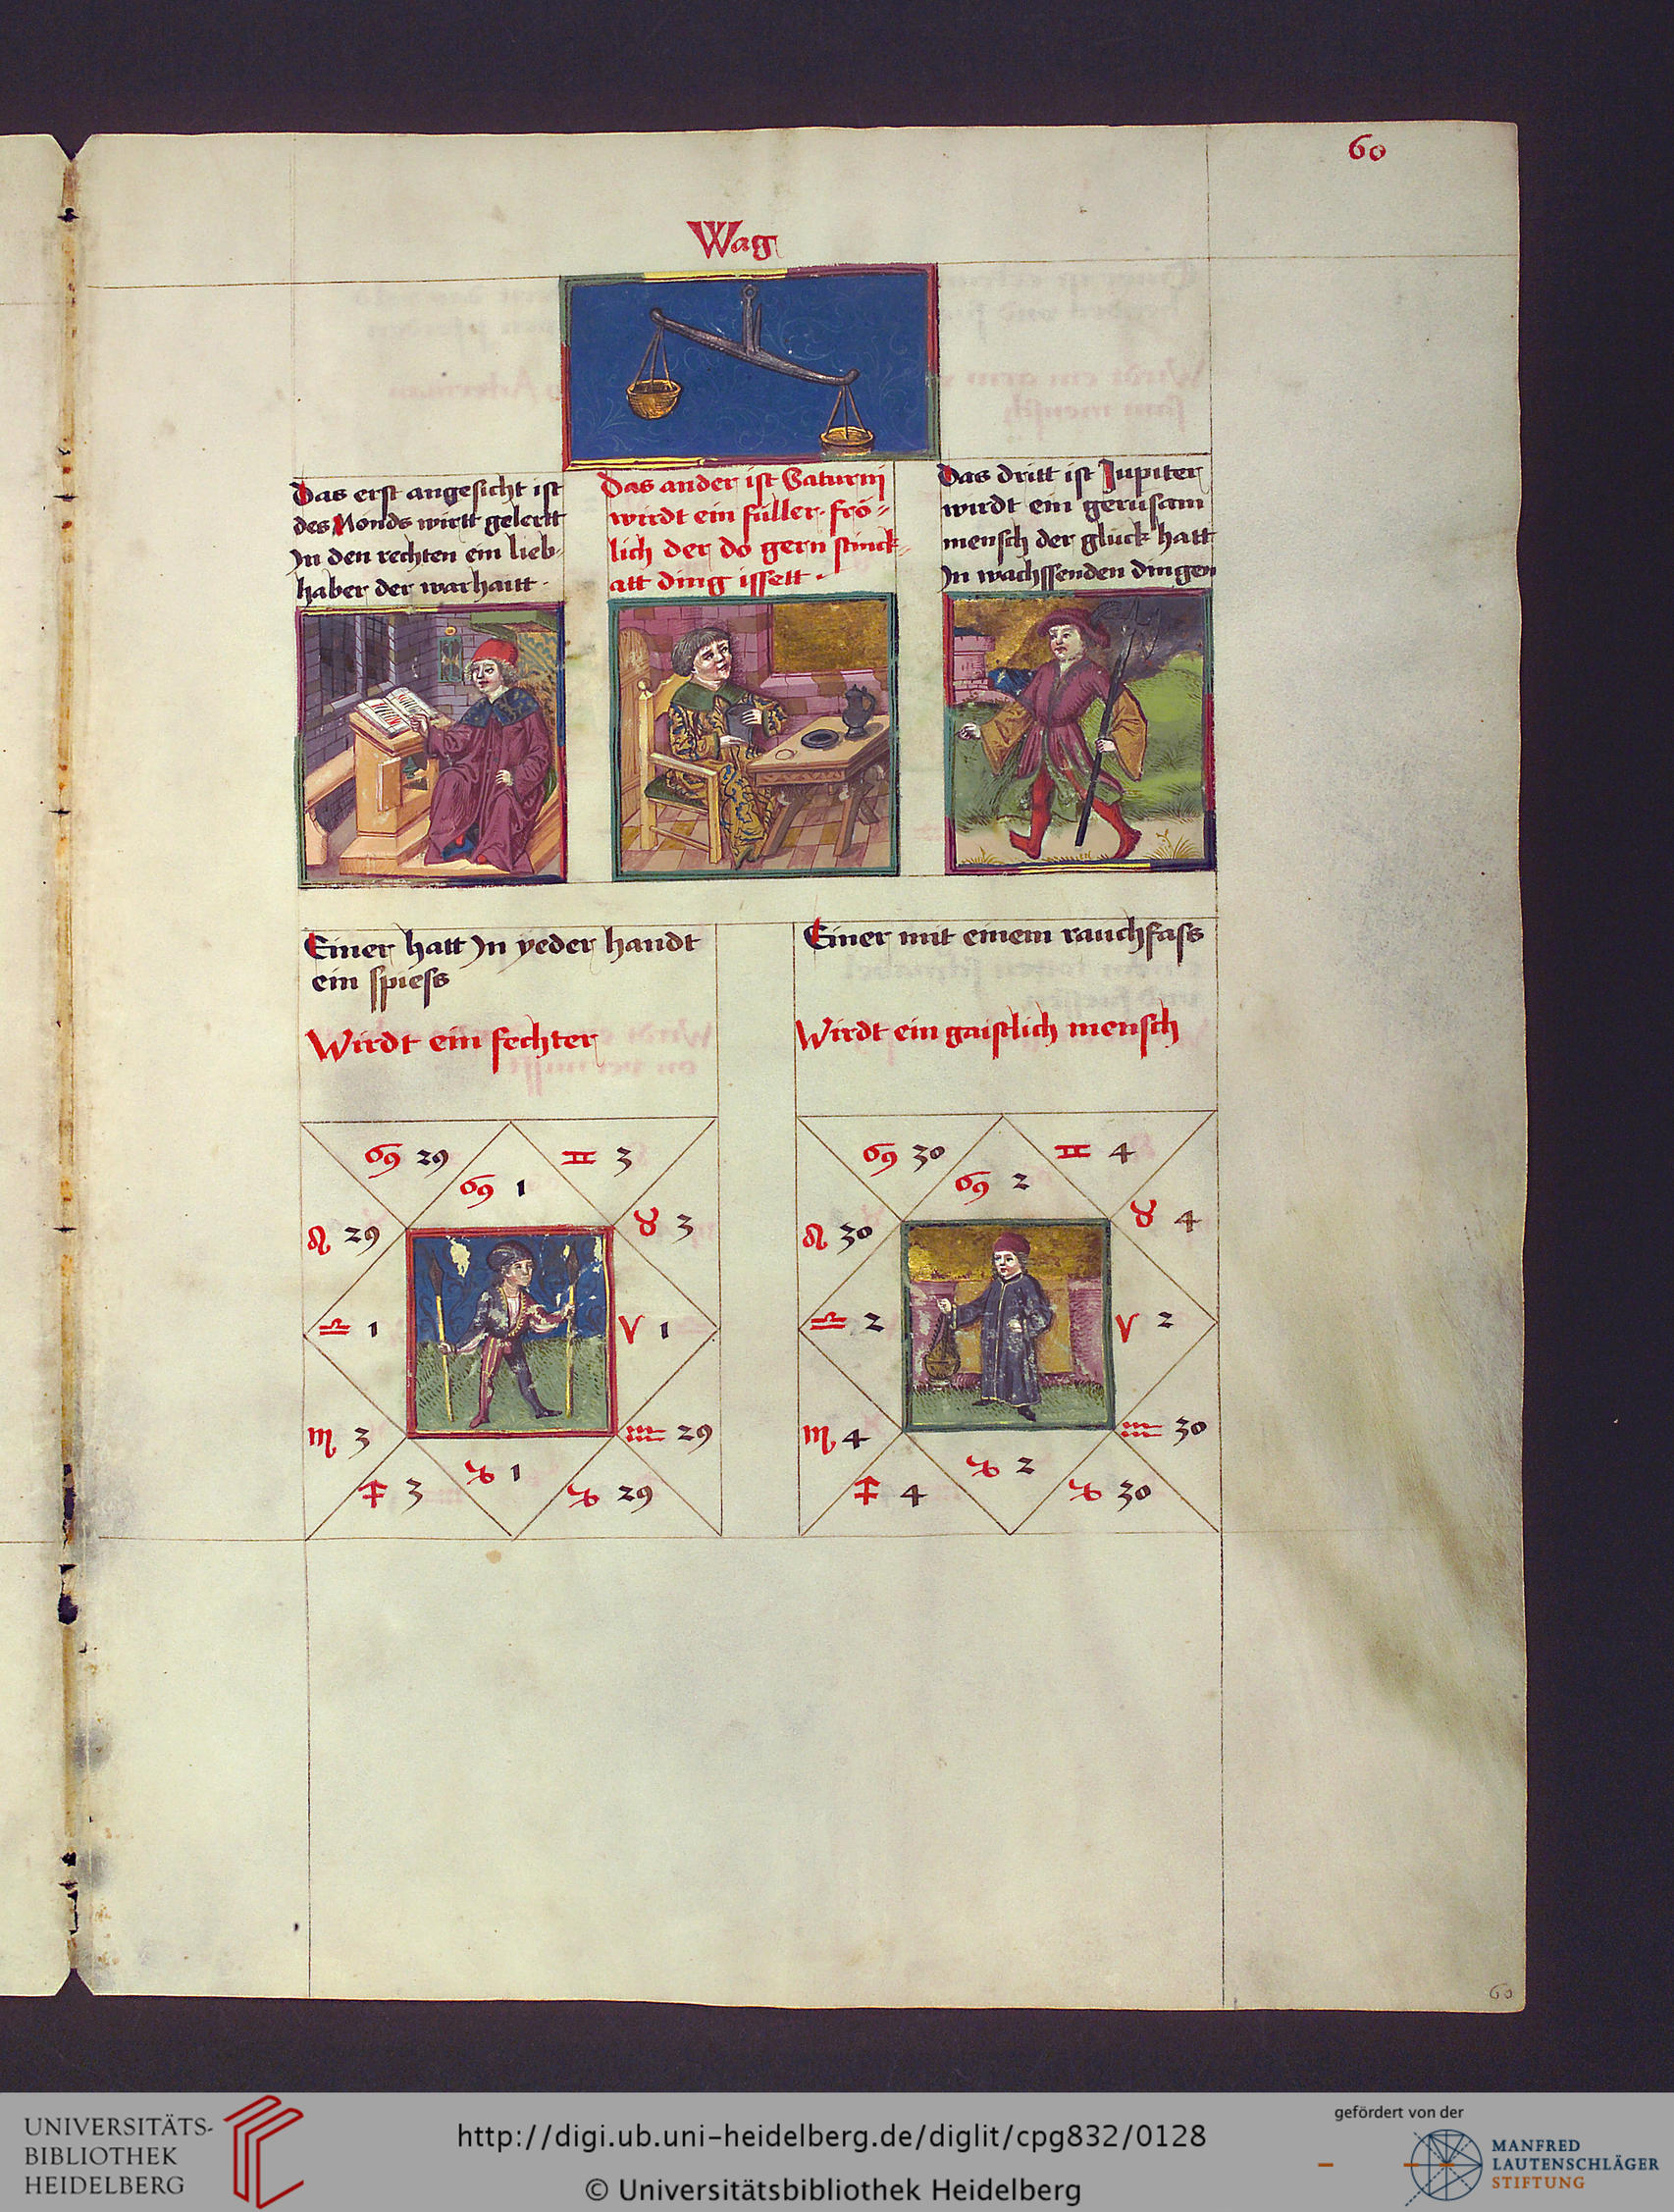 60
Wag
Das erst angesicht ist
des Monds wirtt gelertt
In den rechten ein lieb-
haber der warhaitt ·
Das ander ist Saturnj
wirdt ein füller frö-
lich der do gern stinck-
att ding issett ·
Das dritt ist Jupiter
wirdt ein gerüsam
mensch der glück hatt
In wachssenden dingen
Einer hatt In yeder handt
ein spiess
Wirdt ein fechter
♋ 29
♋ 1
♊ 3
♌ 29
♉ 3
♎ 1
♈ 1
♏ 3
♒ 29
♐ 3
♑ 1
♑ 29
Einer mit einem rauchfass
Wirdt ein gaistlich mensch
♋ 30
♋ 2
♊ 4
♌ 30
♉ 4
♎ 2
♈ 2
♏ 4
♒ 30
♐ 4
♑ 2
♑ 30
60
UNIVERSITÄTS-
BIBLIOTHEK
HEIDELBERG
http://digi.ub.uni-heidelberg.de/diglit/cpg832/0128
© Universitätsbibliothek Heidelberg
gefördert von der
MANFRED
LAUTENSCHLÄGER
STIFTUNG